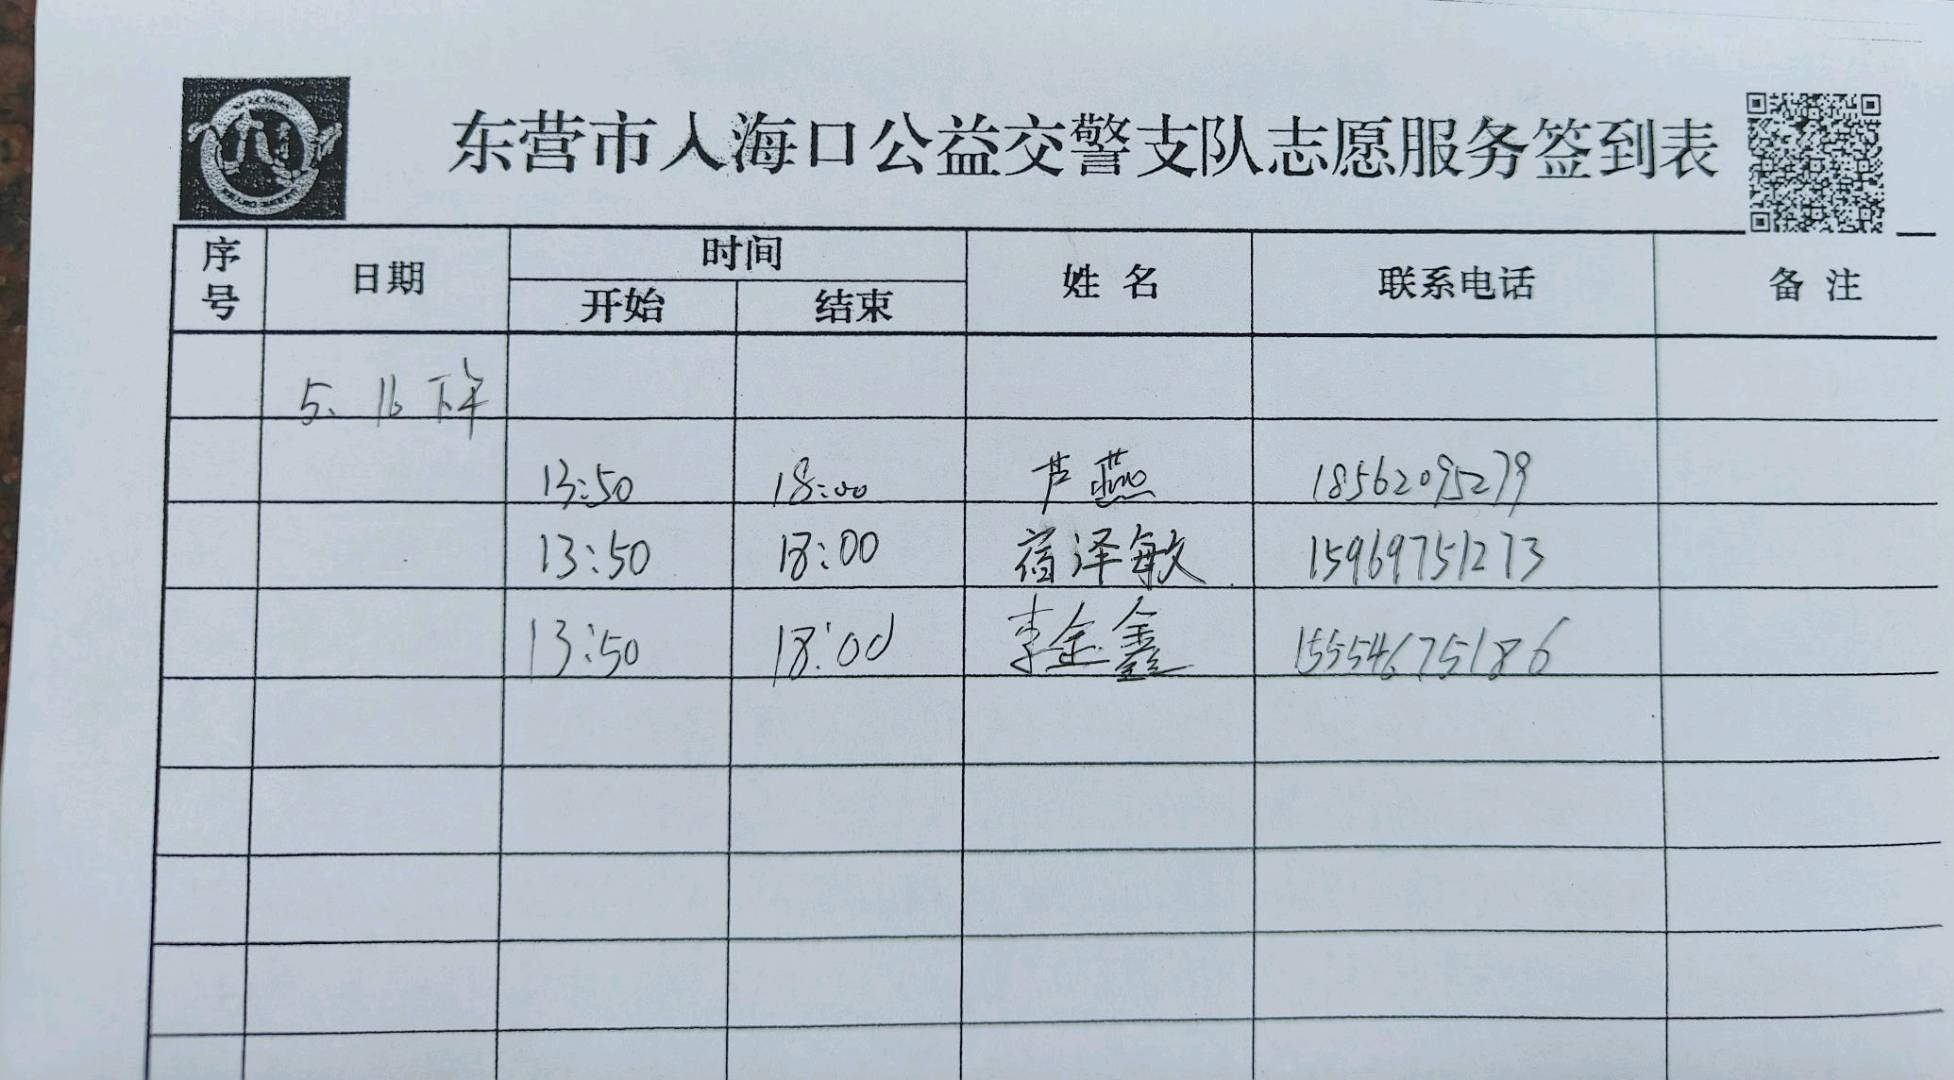 东营市入海口公益交警支队志愿服务签到表
序号 日期 时间 姓名 联系电话 备注
开始 结束
5.16下午
13:50 18:00 芦燕 18562095279
13:50 18:00 宿泽敏 15969751273
13:50 18:00 李金鑫 15554675186